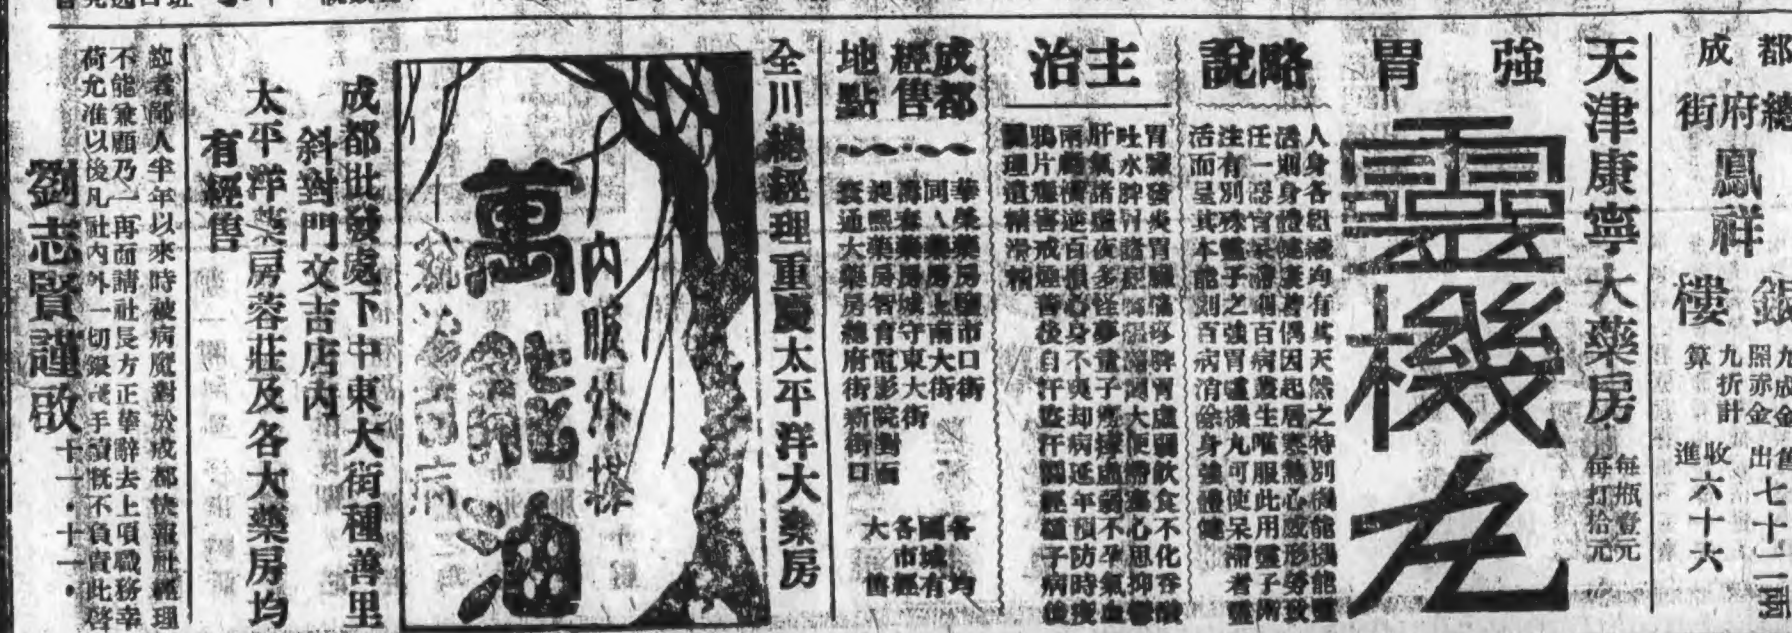 成都
總府街
鳳祥
銀樓
九成金
照赤金
九折計
算
售出七十二
收進六十六
天津康寧大藥房
每瓶壹元
每打拾元
強胃
靈機丸
略說
人身各組織均有其天然之特別機能機能靈
活則身體健康若偶因起居寒熱心或形勞致
任一惡官呆滯則百病叢生唯服此用靈子所
注有別殊靈子之強胃靈機丸可使呆滯者靈
活而呈其本能則百病消除身強體健
主治
胃臟發炎胃臟痛疼脾胃虛弱飲食不化吞酸
吐水脾胃諸病大便滯塞心思抑鬱
肝氣諸虛夜多怪夢童子虛弱不孕氣血
兩虧橫逆百損心身不爽却病延年預防時疫
鴉片癮害戒煙善後自汗盜汗調經種子病後
調理遺精滑精
成都
經售
地點
華榮藥房鹽市口街
同人藥房上南大街
壽春藥房城守東大街
昶熙藥房智育電影院對面
寰通大藥房總府街新街口
各國各大
均有經售
全川總經理重慶太平洋大藥房
內服外搽
萬能油
統治百病
成都批發處下中東大街種善里
斜對門文吉店內
太平洋藥房蓉莊及各大藥房均
有經售
敬者鄙人半年以來時被病魔對於成都快報社經理
不能兼顧乃一再面請社長方正華辭去上項職務幸
荷允准以後凡社內外一切銀錢手續概不負責此啓
劉志賢謹啟
十一．十一．